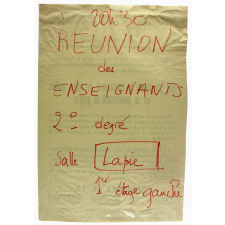 20h30
REUNION
des
ENSEIGNANTS
2e degré
Salle Lapie
1er étage gauche